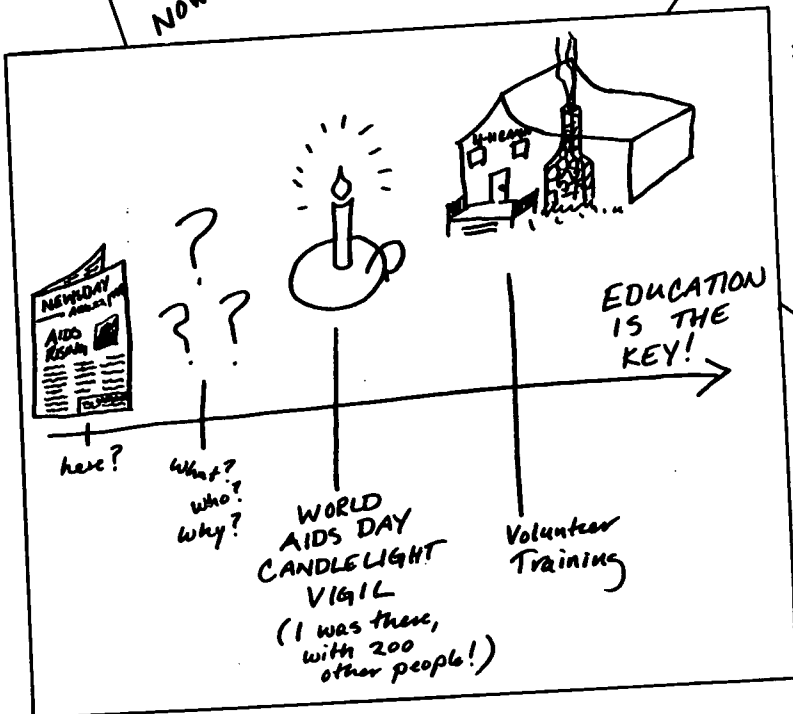 NOW
NEWSDAY
AIDS
RISING
4-HEMA
EDUCATION
IS THE
KEY!
here?
what?
who?
why?
WORLD
AIDS DAY
CANDLELIGHT
VIGIL
(I was there,
with 200
other people!)
Volunteer
Training